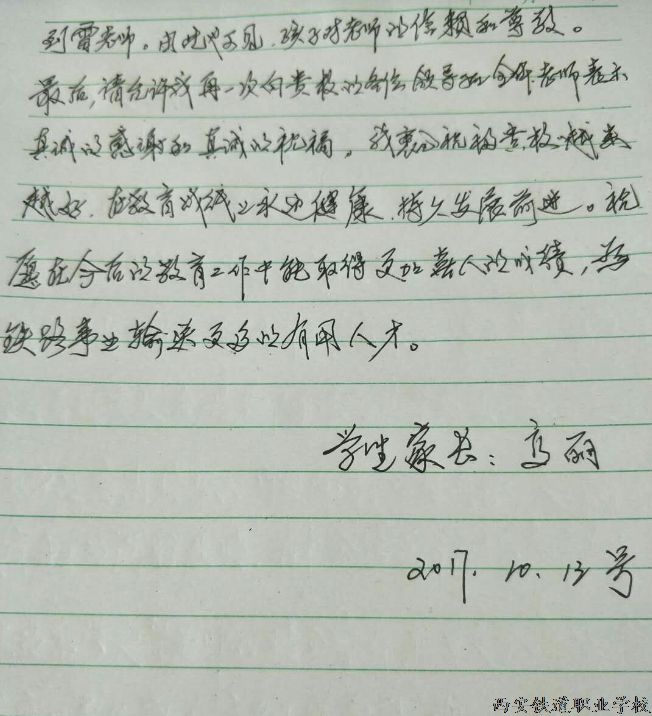 到雷老师。由此也可见，孩子对老师的信赖和尊敬。
最后，请允许我再一次向贵校的各位领导和全体老师表示
真诚的感谢和真诚的祝福，我衷心祝福贵校越来
越好，在教育战线上永远健康、持久发展前进。祝
愿在今后的教育工作中能取得更加喜人的成绩，为
铁路事业输送更多的有用人才。
学生家长：高丽
2017.10.13号
西安铁道职业学校